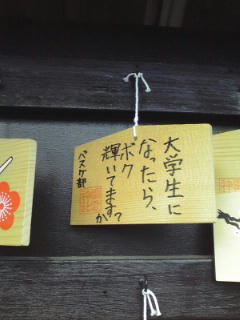 大学生に
なったら、
ボク
輝いてますか?
バスケ部